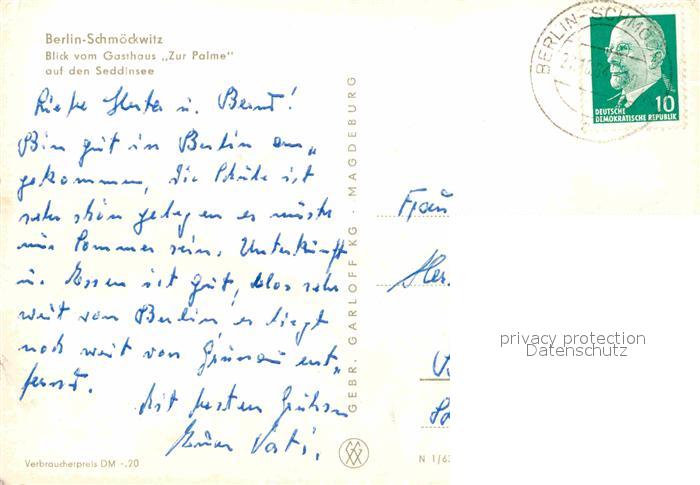 Berlin-Schmöckwitz
Blick vom Gasthaus „Zur Palme"
auf den Seddinsee
Liebe Herta u. Bernd!
Bin gut in Berlin an„
gekommen, die Schule ist
sehr schön gelegen es müßte
nur Sommer sein. Unterkunft
u. Essen ist gut, blos sehr
weit von Berlin, es liegt
noch weit von Grünau ent„
fernt.
Mit besten Grüßen
Euer Vati.
Verbraucherpreis DM -.20
GEBR. GARLOFF KG · MAGDEBURG
N 1/63
BERLIN-SCHMÖCK
10
DEUTSCHE
DEMOKRATISCHE REPUBLIK
Frau
Her
privacy protection
Datenschutz